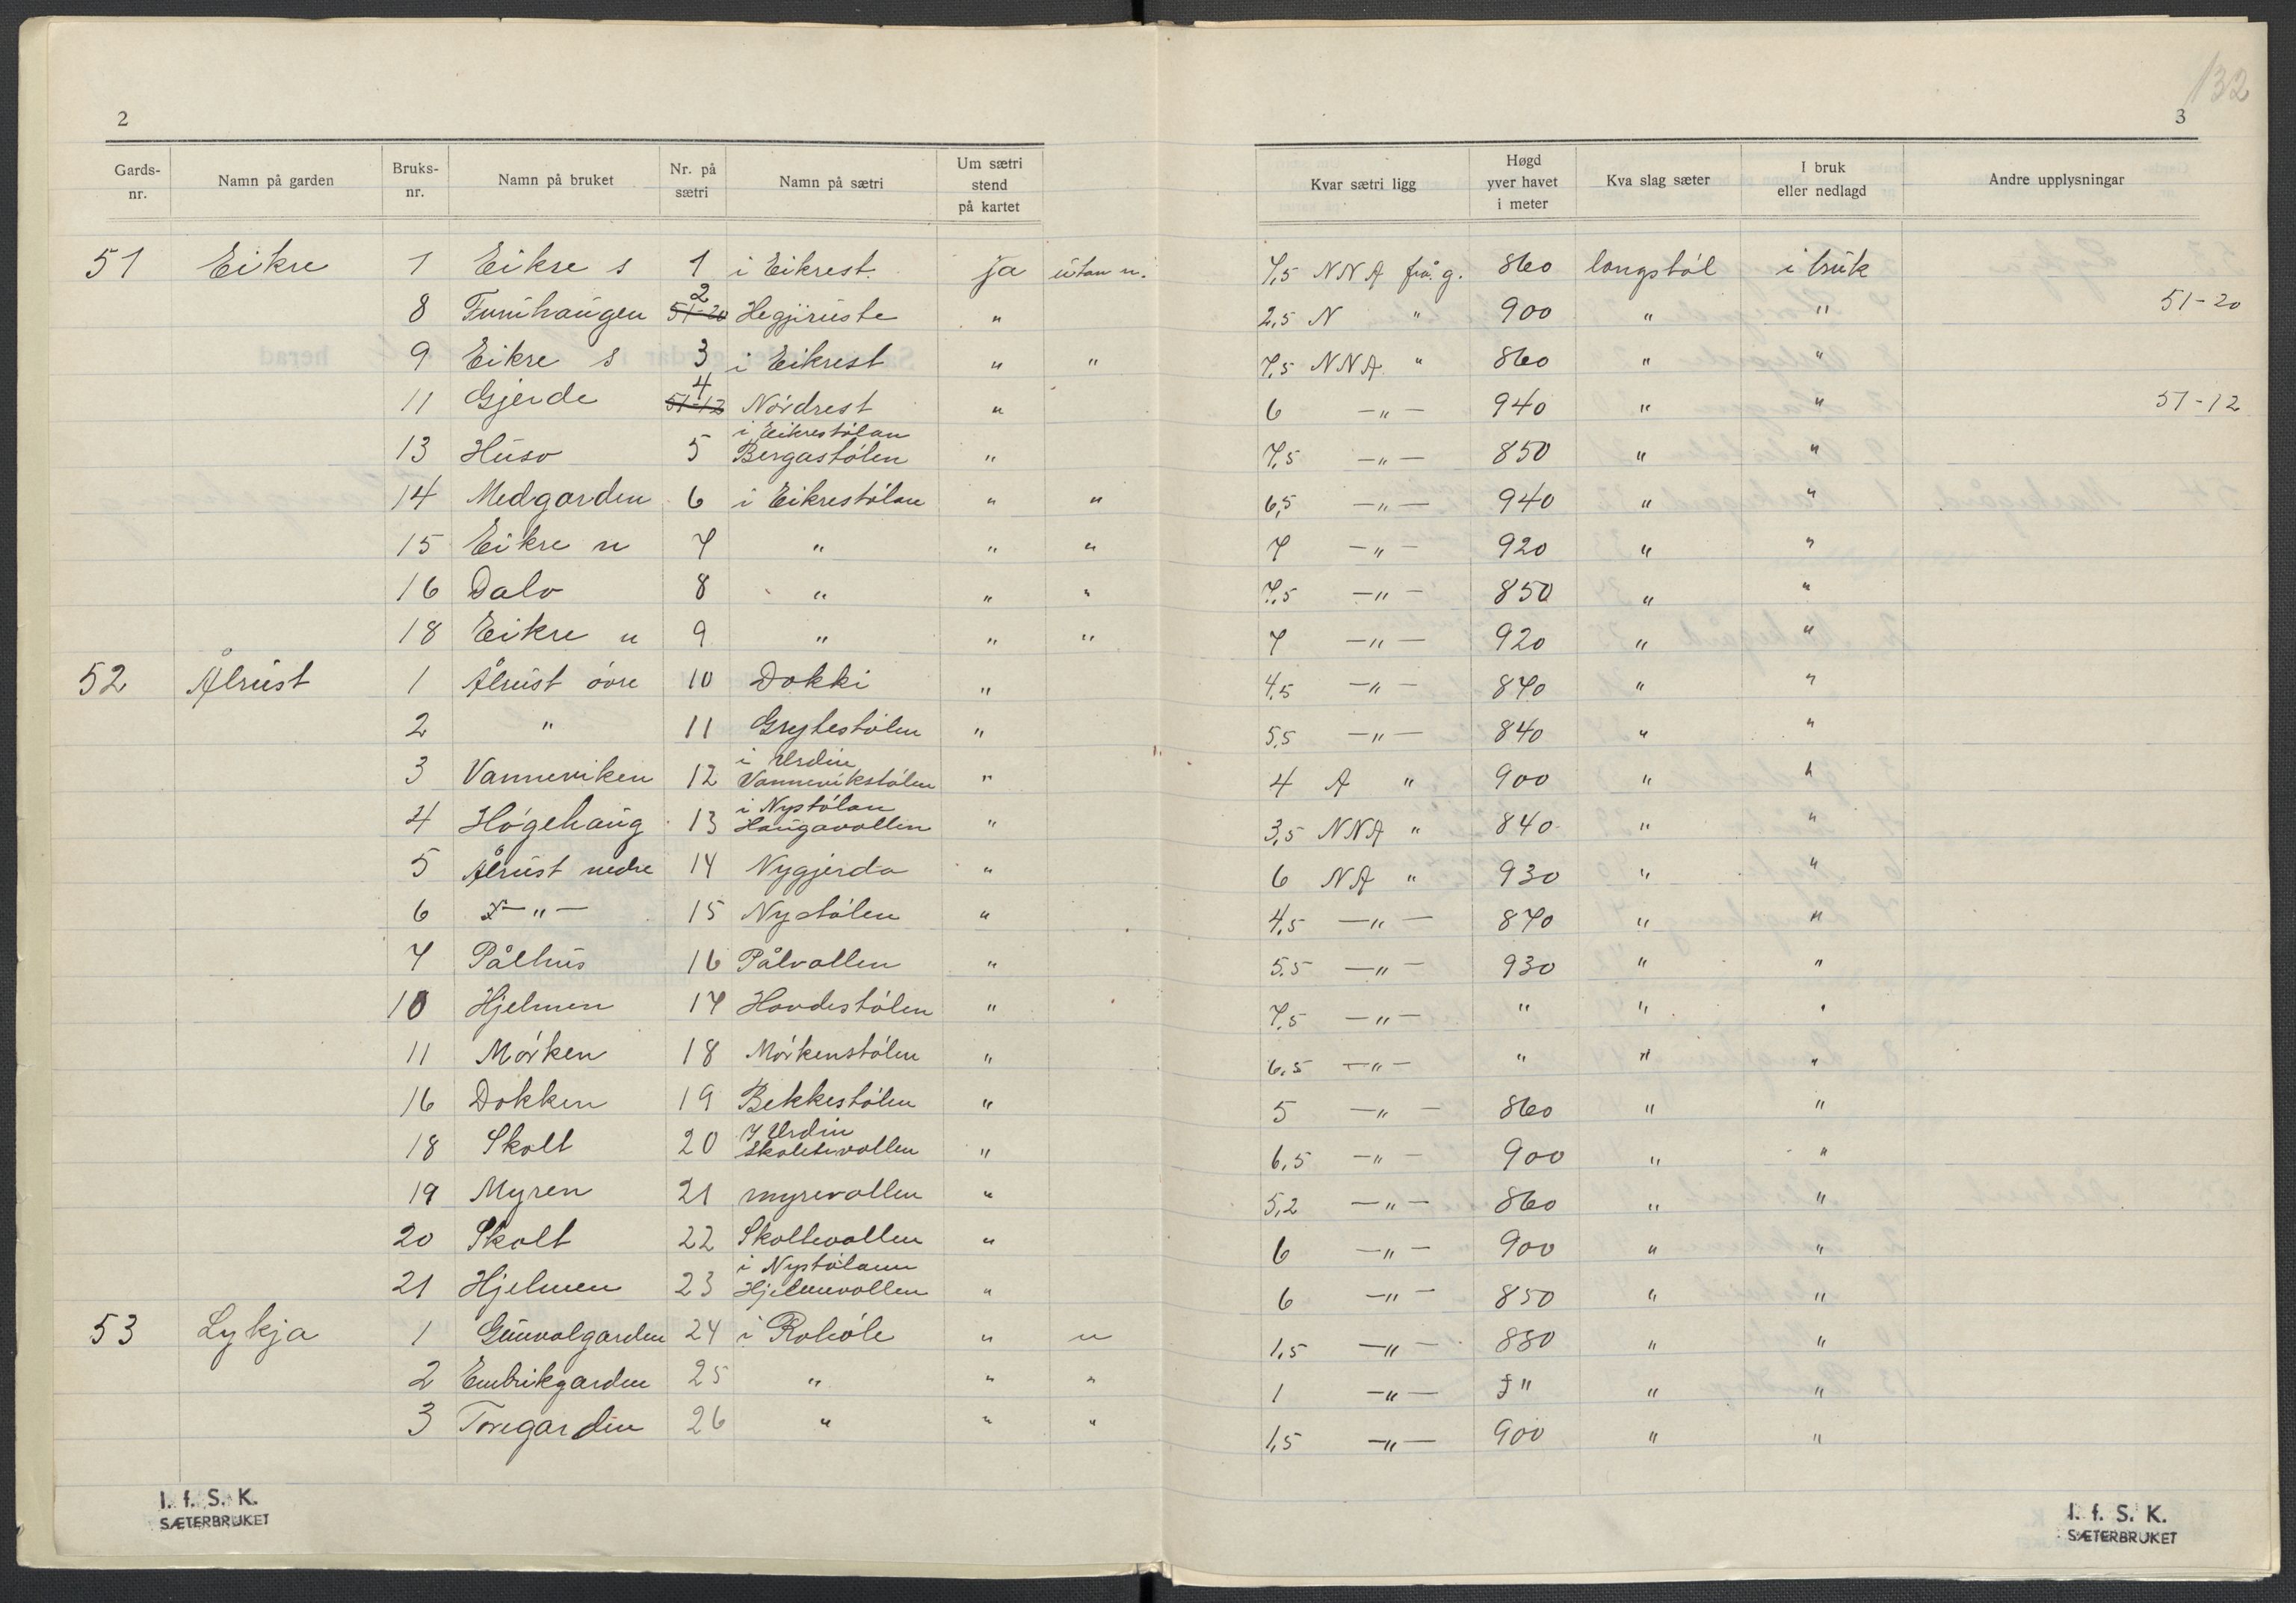 132
2
3
Gards-nr. Namn på garden Bruks-nr. Namn på bruket Nr. på sætri Namn på sætri Um sætri stend på kartet Kvar sætri ligg Høgd yver havet i meter Kva slag sæter I bruk eller nedlagd Andre upplysningar
51 Eikre 1 Eikre s 1 i Eikrest. Ja utan n. 7,5 NNA frå g. 860 langstøl i bruk
8 Furuhaugen 51-20 2 Hegjiruste " 2,5 N " 900 " " 51-20
9 Eikre s 3 i Eikrest " " 7,5 NNA " 860 " "
11 Gjerde 51-12 4 Nørdrest " 6 -"- 940 " " 51-12
13 Huso 5 i Eikrestølan Bergastølen " 7,5 -"- 850 " "
14 Medgarden 6 i Eikrestølan " " 6,5 -"- 940 " "
15 Eikre n 7 " " " 7 -"- 920 " "
16 Dalo 8 " " " 7,5 -"- 850 " "
18 Eikre n 9 " " " 7 -"- 920 " "
52 Ålrust 1 Ålrust øvre 10 Dokki " 4,5 -"- 870 " "
2 " 11 Grytestølen " 5,5 -"- 840 " "
3 Vanneviken 12 i Urdin Vannevikstølen " 4 A " 900 " "
4 Høgehaug 13 i Nystølan Haugavollen " 3,5 NNA " 840 " "
5 Ålrust nedre 14 Nygjerda " 6 NA " 930 " "
6 -"- 15 Nystølen " 4,5 -"- 870 " "
7 Pålhus 16 Pålvollen " 5.5 -"- 930 " "
10 Hjelmen 17 Hovdestølen " 7,5 -"- " " "
11 Mørken 18 Mørkenstølen " 6,5 -"- " " "
16 Dokken 19 Bekkestølen " 5 -"- 860 " "
18 Skolt 20 I Urdin Skoltevollen " 6,5 -"- 900 " "
19 Myren 21 myrevollen " 5,2 -"- 860 " "
20 Skolt 22 Skoltevollen " 6 -"- 900 " "
21 Hjelmen 23 i Nystølann Hjelmevollen " 6 -"- 850 " "
53 Lykja 1 Gunvalgarden 24 i Roliøle " " 1,5 -"- 880 " "
2 Embrikgarden 25 " " " 1 -"- " " "
3 Toregarden 26 " " " 1,5 -"- 900 " "
I. f. S. K.
SÆTERBRUKET
I. f. S. K.
SÆTERBRUKET